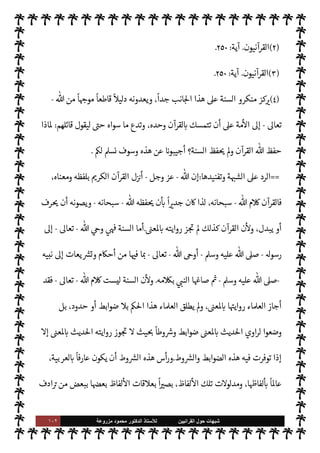 (٢)القرآنيون. آية: ٢٥٠.
(٣)القرآنيون. آية: ٢٥٠.
(٤)يركز منكرو السنة على هذا الجانب جداً، ويعدونه دليلاً قاطعاً موجهاً من الله -
تعالى - إلى الأمة على أن تتمسك بالقرآن وحده، وتدع ما سواه حتى ليقول قائلهم: لماذا
حفظ الله القرآن ولم يحفظ السنة؟ أجيبونا عن هذه وسوف نسلم لكم .
==الرد على الشبهة وتفنيدها:إن الله - عز وجل - أنزل القرآن الكريم بلفظه ومعناه،
فالقرآن كلام الله - سبحانه، لذا كان جديراً بأن يحفظه الله - سبحانه - ويصونه أن يحرف
أو يبدل، ولأن القرآن كذلك لم تجز روايته بالمعنى.أما السنة فهي وحي الله - تعالى - إلى
رسوله - صلى الله عليه وسلم - أوحى الله - تعالى - بما فيها من أحكام وتشريعات إلى نبيه
-صلى الله عليه وسلم - ثم صاغها النبي بكلامه. ولأن السنة ليست كلام الله - تعالى - فقد
أجاز العلماء روايتها بالمعنى، ولم يطلق العلماء هذا الحكم بلا ضوابط أو حدود، بل
وضعوا لراوي الحديث بالمعنى ضوابط وشروطاً بحيث لا تجوز روايته الحديث بالمعنى إلا
إذا توفرت فيه هذه الضوابط والشروط.ورأس هذه الشروط أن يكون عارفاً بالعربية،
عالماً بألفاظها، ومدلولات تلك الألفاظ، بصيراً بعلاقات الألفاظ بعضها ببعض من ترادف
شبهات حول القرآنيين للأستاذ الدكتور محمود مزروعة ١٠٢